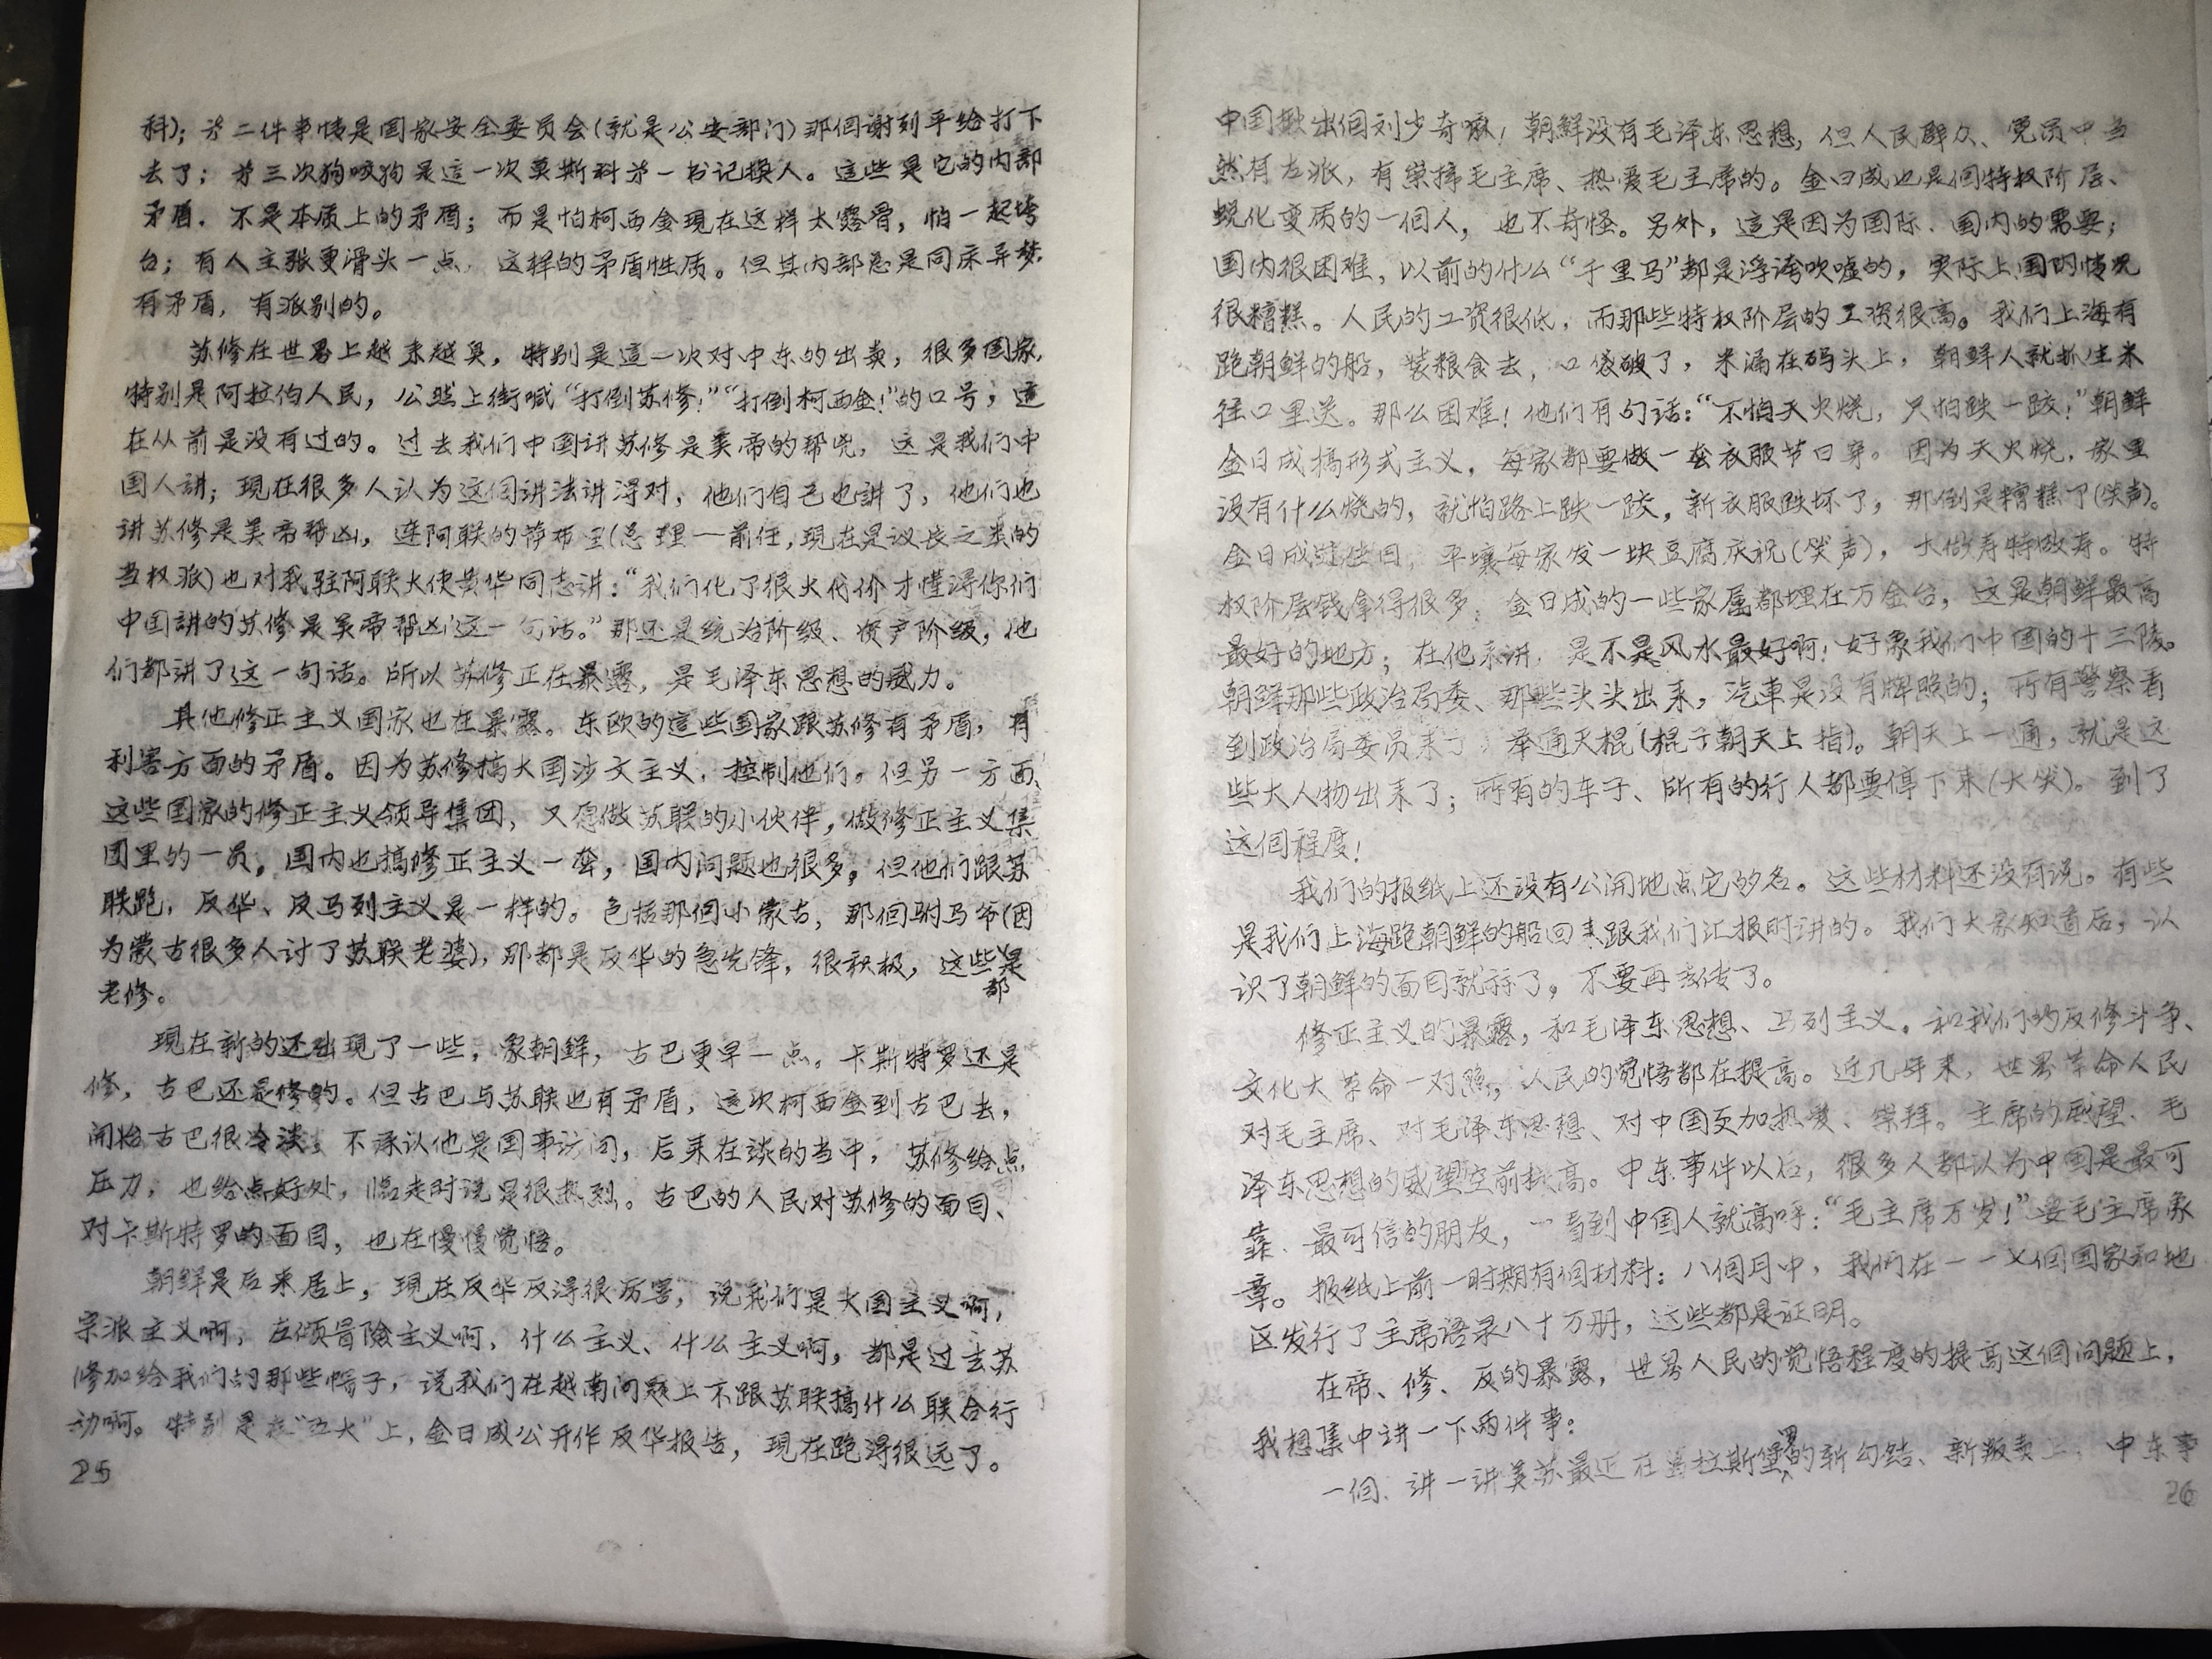 科）；第二件事情是国家安全委员会（就是公安部门）那個谢列平给打下
去了；第三次狗咬狗是這一次莫斯科第一书记换人。這些是它的内部
矛盾．不是本质上的矛盾；而是怕柯西金現在这样太露骨，怕一起垮
台；有人主张更滑头一点，这样的矛盾性质。但其内部总是同床异梦，
有矛盾，有派别的。
苏修在世界上越来越臭，特别是這一次对中东的出卖，很多国家，
特别是阿拉伯人民，公然上街喊“打倒苏修！”“打倒柯西金！”的口号，這
在从前是没有过的。过去我们中国讲苏修是美帝的帮兇，这是我们中
国人讲；現在很多人认为这個讲法讲得对，他们自己也講了，他们也
讲苏修是美帝帮凶，连阿联的萨布里（总理一前任，現在是议長之类的
当权派）也对我驻阿联大使黄华同志讲：“我们化了很大代价才懂得你们
中国講的‘苏修是美帝帮凶’这一句话。”那还是统治阶级、资产阶级，他
们都讲了这一句话。所以苏修正在暴露，是毛泽东思想的威力。
其他修正主义国家也在暴露。东欧的這些国家跟苏修有矛盾，有
利害方面的矛盾。因为苏修搞大国沙文主义，控制他们。但另一方面，
这些国家的修正主义领导集团，又愿做苏联的小伙伴，做修正主义集
团里的一员，国内也搞修正主义一套，国内问题也很多，但他们跟苏
联跑，反华、反马列主义是一样的。包括那個小蒙古，那個驸马爷（因
为蒙古很多人讨了苏联老婆），那都是反华的急先锋，很积极，这些都是
老修。
現在新的还出現了一些，象朝鲜，古巴更早一点。卡斯特罗还是
修，古巴还是修的。但古巴与苏联也有矛盾，这次柯西金到古巴去，
開始古巴很冷淡，不承认他是国事访问，后来在谈的当中，苏修给点
压力，也给点好处，临走时说是很热烈。古巴的人民对苏修的面目、
对卡斯特罗的面目，也在慢慢觉悟。
朝鲜是后来居上，現在反华反得很厉害，说我们是大国主义啊，
宗派主义啊，左倾冒險主义啊，什么主义、什么主义啊，都是过去苏
修加给我们的那些帽子，说我们在越南问题上不跟苏联搞什么联合行
动啊。特别是在“五大”上，金日成公开作反华报告，現在跑得很远了。
25
中国揪出個刘少奇嘛！朝鲜没有毛泽东思想，但人民群众、党员中当
然有左派，有崇拜毛主席、热爱毛主席的。金日成也是個特权阶层、
蜕化变质的一個人，也不奇怪。另外，這是因为国际、国内的需要；
国内很困难，以前的什么“千里马”都是浮誇吹嘘的，实际上国内情况
很糟糕。人民的工资很低，而那些特权阶层的工资很高。我们上海有
跑朝鲜的船，装粮食去，口袋破了，米漏在码头上，朝鲜人就抓生米
往口里送。那么困难！他们有句话：“不怕天火烧，只怕跌一跤！”朝鲜
金日成搞形式主义，每家都要做一套衣服节日穿。因为天火烧，家里
没有什么烧的，就怕路上跌一跤，新衣服跌坏了，那倒是糟糕了（笑声）。
金日成过生日，平壤每家发一块豆腐庆祝（笑声），大做寿特做寿。特
权阶层钱拿得很多；金日成的一些家屬都埋在万金台，这是朝鲜最高
最好的地方；在他来讲，是不是风水最好啊！好象我们中国的十三陵。
朝鲜那些政治局委、那些头头出来，汽車是没有牌照的；所有警察看
到政治局委员来了，举通天棍（棍子朝天上指）。朝天上一通，就是这
些大人物出来了；所有的车子、所有的行人都要停下来（大笑）。到了
这個程度！
我们的报纸上还没有公開地点它的名。这些材料还没有说。有些
是我们上海跑朝鲜的船回来跟我们汇报时讲的。我们大家知道后，认
识了朝鲜的面目就行了，不要再去传了。
修正主义的暴露，和毛泽东思想、马列主义，和我们的反修斗争、
文化大革命一对照，人民的觉悟都在提高。近几年来，世界革命人民
对毛主席、对毛泽东思想、对中国更加热爱、崇拜。主席的威望、毛
泽东思想的威望空前提高。中东事件以后，很多人都认为中国是最可
靠、最可信的朋友，一看到中国人就高呼：“毛主席万岁！”要毛主席象
章。报纸上前一时期有個材料：八個月中，我们在一一乂個国家和地
区发行了主席语录八十万册，这些都是证明。
在帝、修、反的暴露，世界人民的觉悟程度的提高这個问题上，
我想集中讲一下两件事：
一個，讲一讲美苏最近在葛拉斯堡罗的新勾结、新叛卖上，中东事
26